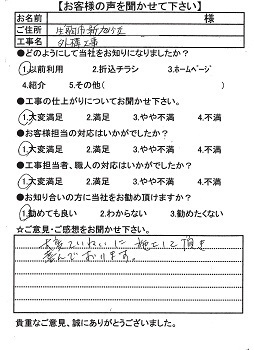 【お客様の声を聞かせて下さい】
お名前 様
ご住所 生駒市新旭ケ丘
工事名 外構工事
●どのようにして当社をお知りになりましたか?
1.以前利用 2.折込チラシ 3.ホームページ
4.紹介 5.その他( )
●工事の仕上がりについてお聞かせ下さい。
1.大変満足 2.満足 3.やや不満 4.不満
●お客様担当の対応はいかがでしたか?
1.大変満足 2.満足 3.やや不満 4.不満
●工事担当者、職人の対応はいかがでしたか?
1.大変満足 2.満足 3.やや不満 4.不満
●お知り合いの方に当社をお勧め頂けますか?
1.勧めても良い 2.わからない 3.勧めたくない
☆ご意見・ご感想をお聞かせ下さい。
大変ていねいに施工して頂き
喜んでおります。
貴重なご意見、誠にありがとうございました。